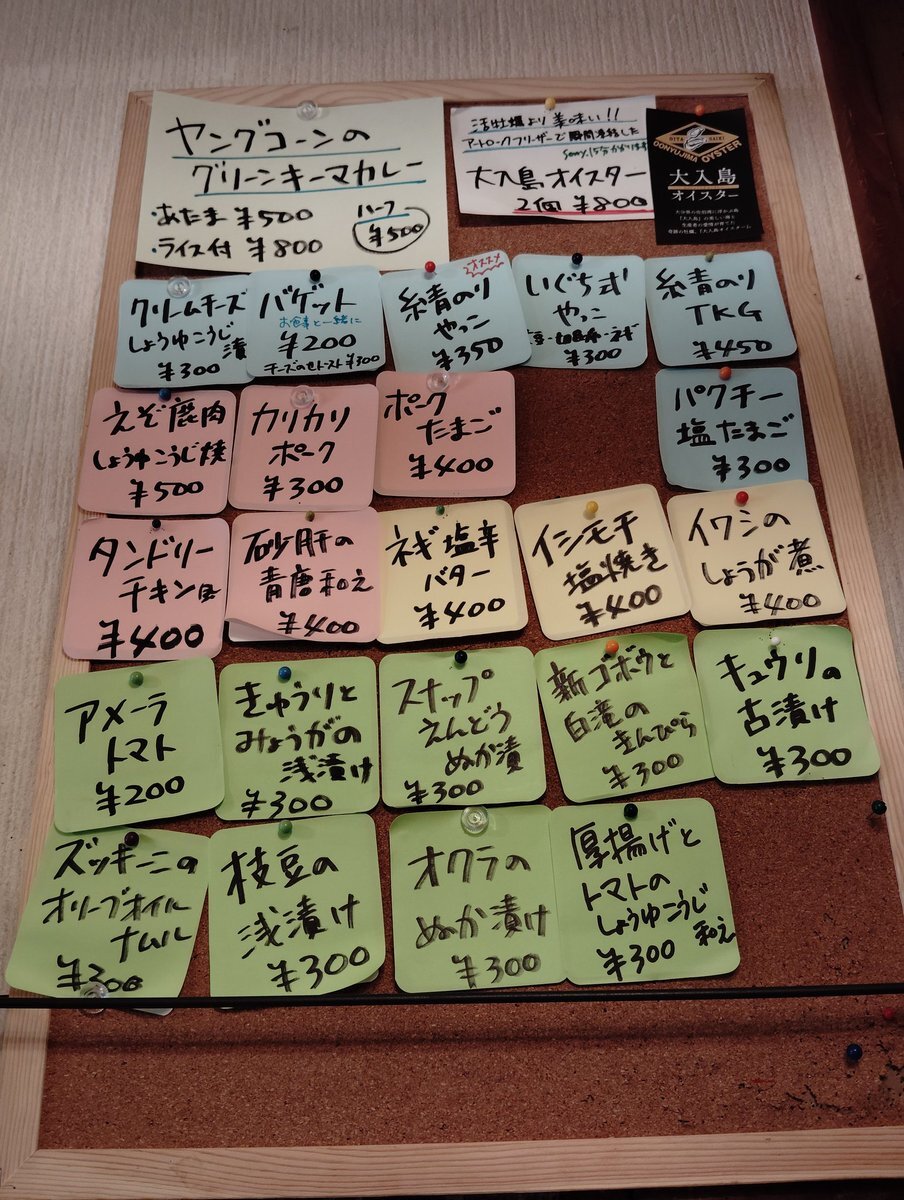 ヤングコーンの
グリーンキーマカレー
・あたま ¥500
・ライス付 ¥800
ハーフ
¥500
活牡蠣より美味い!!
アートロックフリーザーで瞬間凍結した
大入島オイスター
2個 ¥800
OITA SAIKI
OONYUJIMA OYSTER
大入島
オイスター
クリームチーズ
しょうゆこうじ
漬
¥300
バゲット
お食事と一緒に
¥200
チーズのせトースト¥300
オススメ
糸青のり
やっこ
¥350
いぐち式
やっこ
¥300
糸青のり
TKG
¥450
えぞ鹿肉
しょうゆこうじ焼
¥500
カリカリ
ポーク
¥300
ポーク
たまご
¥400
パクチー
塩たまご
¥300
タンドリー
チキン
¥400
砂肝の
青唐和え
¥400
ネギ塩辛
バター
¥400
イシモチ
塩焼き
¥400
イワシの
しょうが煮
¥400
アメーラ
トマト
¥200
きゅうりと
みょうがの
浅漬け
¥300
スナップ
えんどう
ぬか漬
¥300
新ゴボウと
白滝の
きんぴら
¥300
キュウリの
古漬け
¥300
ズッキーニの
オリーブオイル
ナムル
¥300
枝豆の
浅漬け
¥300
オクラの
ぬか漬け
¥300
厚揚げと
トマトの
しょうゆこうじ
和え
¥300